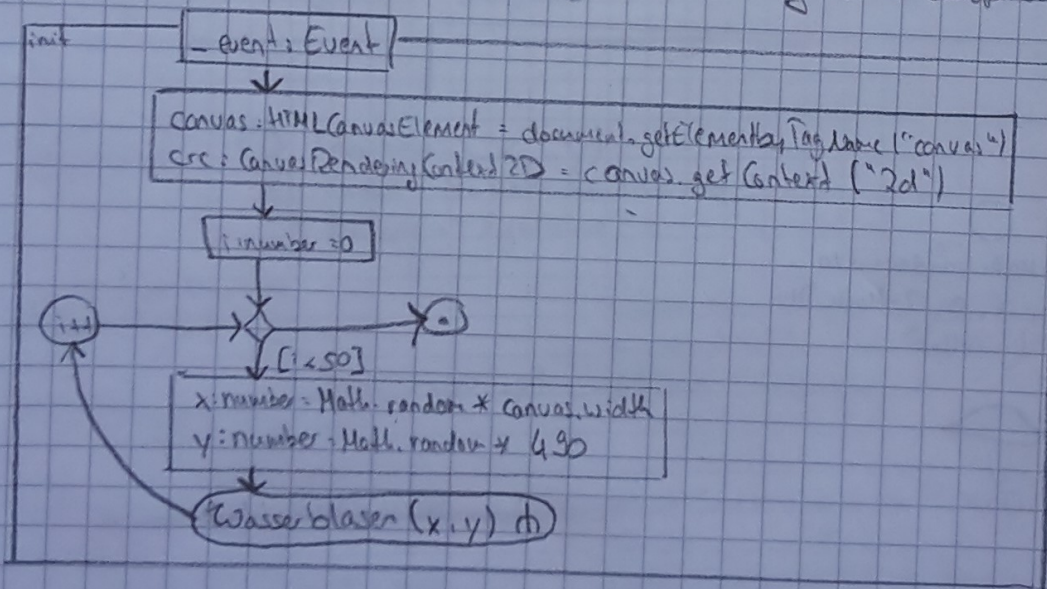 init
_event: Event
canvas: HTMLCanvasElement = document.getElementbyTagName("canvas")
crc: CanvasRenderingContext2D = canvas.getContext("2d")
i:number=0
i++
[i<50]
x:number=Math.random * canvas.width
y:number=Math.random * 490
Wasserblasen(x,y)